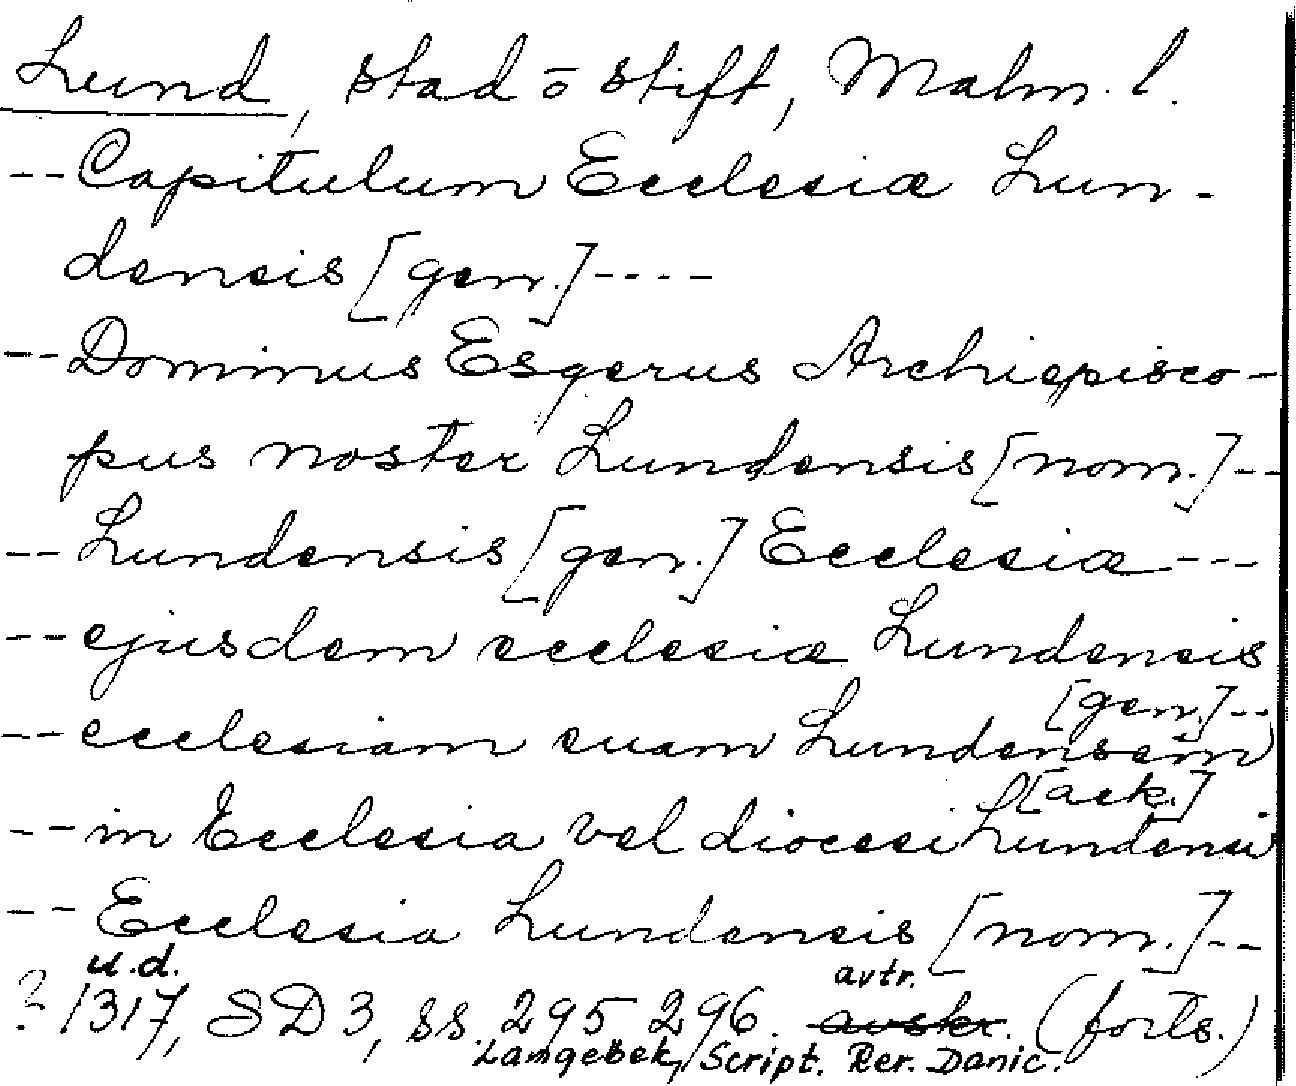 Lund, stad o stift, Malm. l.
-- Capitulum Ecclesiæ Lun-
densis [gen.] ----
-- Dominus Esgerus Archiepisco-
pus noster Lundensis [nom.] --
-- Lundensis [gen.] Ecclesiæ ---
-- ejusdem ecclesiæ Lundensis
[gen.] --
-- ecclesiam suam Lundensem
[ack.]
-- in Ecclesia vel diocesi Lundensi
-- Ecclesia Lundensis [nom.] --
u.d. avtr.
? 1317, SD 3, ss. 295 296. avskr. (forts.)
Langebek, Script. Rer. Danic.